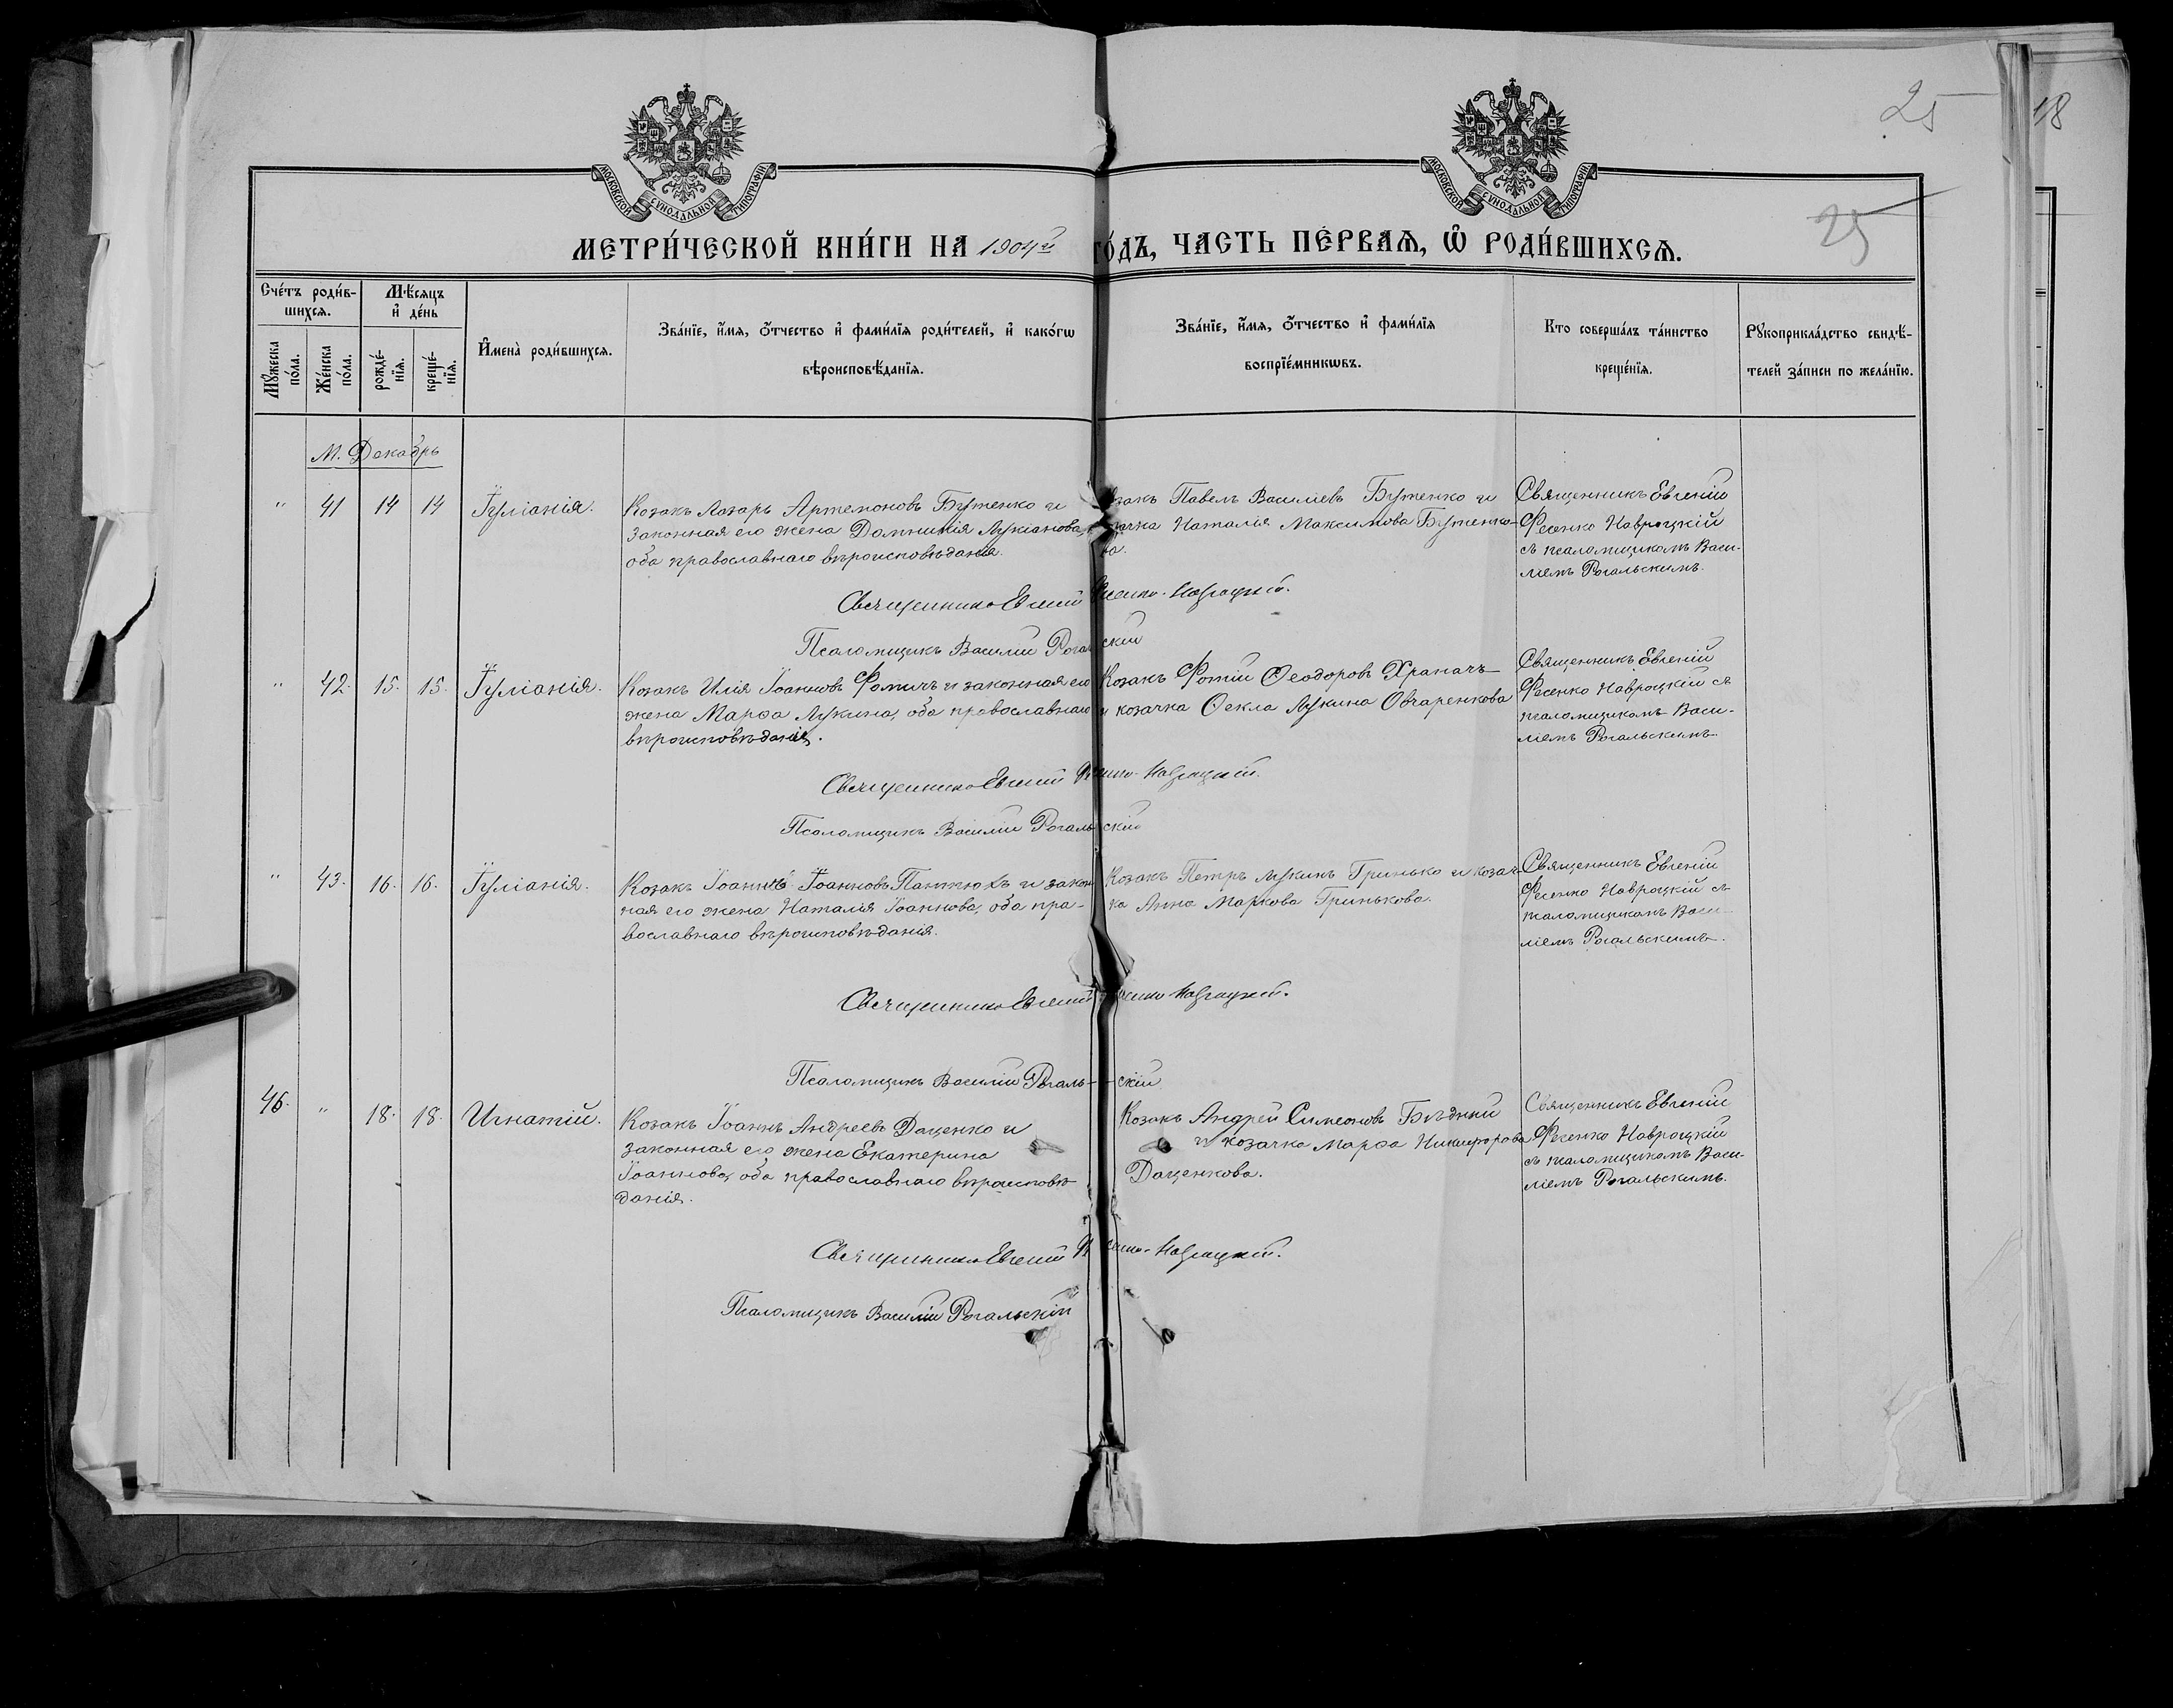 25
18
МОСКОВСКОЙ СѴНОДАЛЬНОЙ ТИПОГРАФІИ
МОСКОВСКОЙ СѴНОДАЛЬНОЙ ТИПОГРАФІИ
25
МЕТРИ́ЧЕСКОЙ КНИ́ГИ НА 1904й го́дъ, ЧАСТЬ ПЕ́РВАѦ, Ѡ РОДИ́ВШИХСѦ.
Сче́тъ роди́в-
шихсѧ.
Мꙋ́жеска
по́ла.
Же́нска
по́ла.
Мѣ́сѧцъ
и҆ де́нь
рожде́-
нїѧ.
креще́-
нїѧ.
И҆мена̀ роди́вшихсѧ.
Зва́нїе, и҆́мѧ, ѻ҆́тчество и҆ фами́лїѧ роди́телей, и҆ како́гѡ
вѣроисповѣ́данїѧ.
Зва́нїе, и҆́мѧ, ѻ҆́тчество и҆ фами́лїѧ
воспрїе́мникѡвъ.
Кто соверша́лъ та́инство
креще́нїѧ.
Рꙋкоприкла́дство свидѣ́-
телей за́писи по жела́нїю.
М. Декабрь
" 41 14 14 Іуліанія.
Козакъ Лазарь Артемоновъ Бутенко и
законная его жена Домникія Лукіанова,
оба православнаго вѣроисповѣданія.
Козакъ Павелъ Василіевъ Бутенко и
козачка Наталія Максимова Бутенко-
ва.
Священникъ Евгеній
Фесенко Навроцкій
съ псаломщикомъ Васи-
ліемъ Рогальскимъ.
Священникъ Евгеній Фесенко-Навроцкій.
Псаломщикъ Василій Рогальскій
" 42. 15. 15. Іуліанія.
Козакъ Илія Іоанновъ Фомичъ и законная его
жена Марѳа Лукина, оба православнаго
вѣроисповѣданія.
Козакъ Фотій Ѳеодоровъ Храпачъ
и козачка Ѳекла Лукина Овчаренкова
Священникъ Евгеній
Фесенко Навроцкій съ
псаломщикомъ Васи-
ліемъ Рогальскимъ
Священникъ Евгеній Фесенко-Навроцкій.
Псаломщикъ Василій Рогальскій
" 43. 16. 16. Іуліанія.
Козакъ Іоаннъ Іоанновъ Пантюхъ и закон-
ная его жена Наталія Іоаннова, оба пра-
вославнаго вѣроисповѣданія.
Козакъ Петръ Лукинъ Гринько и козач-
ка Анна Маркова Гринькова.
Священникъ Евгеній
Фесенко Навроцкій съ
псаломщикомъ Васи-
ліемъ Рогальскимъ.
Священникъ Евгеній Фесенко Навроцкій.
Псаломщикъ Василій Рогаль-скій
46. " 18. 18. Игнатій.
Козакъ Іоаннъ Андреевъ Даценко и
законная его жена Екатерина
Іоаннова, оба православнаго вѣроисповѣ-
данія.
Козакъ Андрей Симеоновъ Бѣдный
и козачка Марѳа Никифорова
Даценкова.
Священникъ Евгеній
Фесенко Навроцкій
съ псаломщикомъ Васи-
ліемъ Рогальскимъ.
Священникъ Евгеній Фесенко-Навроцкій.
Псаломщикъ Василій Рогальскій